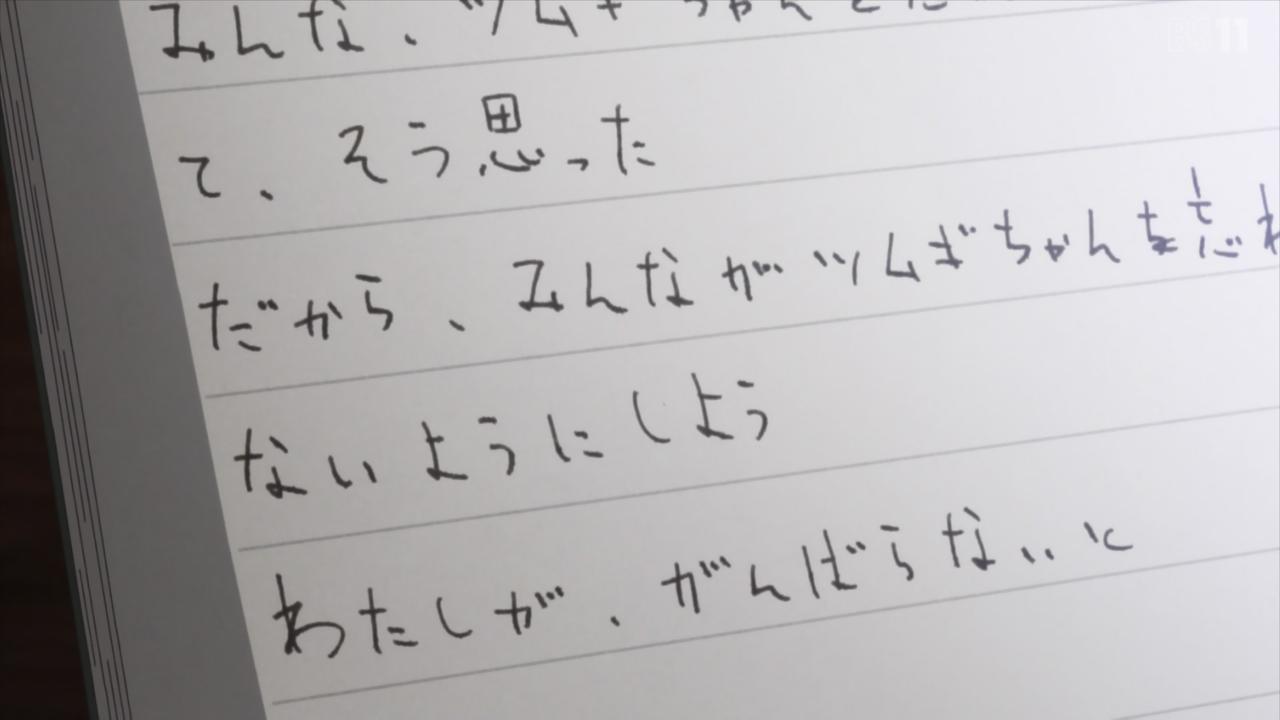 みんな、ツムギちゃん
BS11
て、そう思った
だから、みんながツムギちゃんを忘れ
ないようにしよう
わたしが、がんばらないと